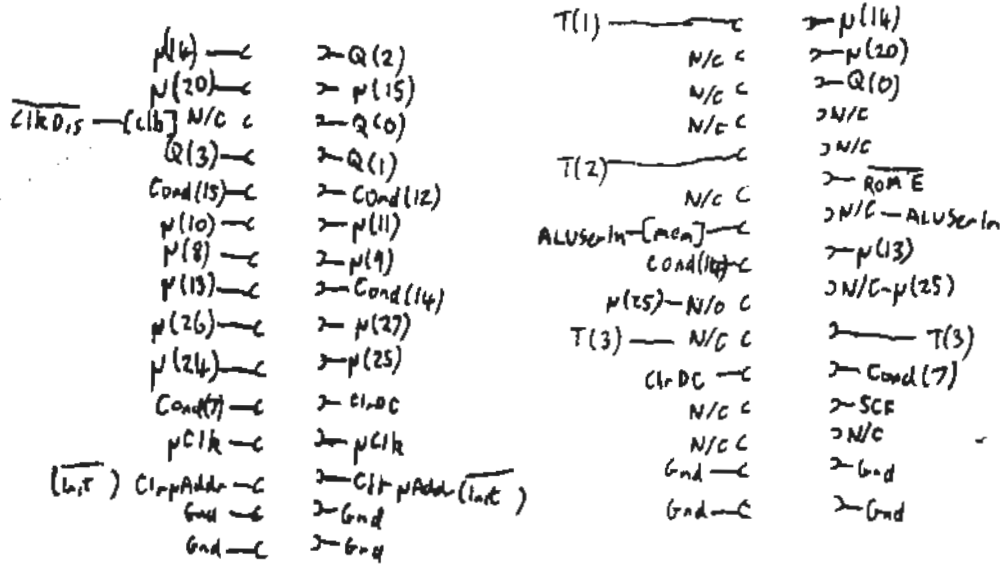 μ(14) Q(2)
μ(20) μ(15)
ClkDis [clb] N/C Q(0)
Q(3) Q(1)
Cond(15) Cond(12)
μ(10) μ(11)
μ(8) μ(9)
μ(13) Cond(14)
μ(26) μ(27)
μ(24) μ(25)
Cond(7) ClrDC
μClk μClk
(Init) ClrμAddr Clr μAddr (Init)
Gnd Gnd
Gnd Gnd
T(1) μ(14)
N/C μ(20)
N/C Q(0)
N/C N/C
T(2) N/C
N/C ROM E
ALUSerIn [mem] N/C ALUSerIn
Cond(14) μ(13)
μ(25) N/C N/C μ(25)
T(3) N/C T(3)
ClrDC Cond(7)
N/C SCF
N/C N/C
Gnd Gnd
Gnd Gnd